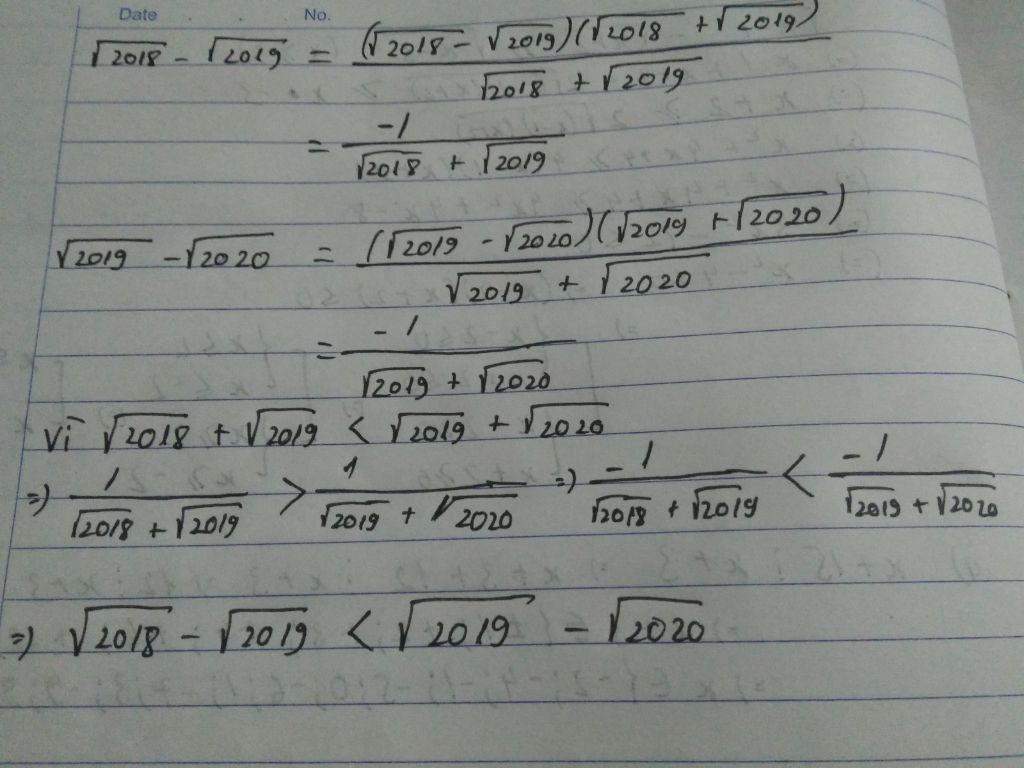 Date No.
√2018 - √2019 = (√2018 - √2019)(√2018 + √2019) / √2018 + √2019
= -1 / √2018 + √2019
√2019 - √2020 = (√2019 - √2020)(√2019 + √2020) / √2019 + √2020
= -1 / √2019 + √2020
Vì √2018 + √2019 < √2019 + √2020
=) 1 / √2018 + √2019 > 1 / √2019 + √2020 =) -1 / √2018 + √2019 < -1 / √2019 + √2020
=) √2018 - √2019 < √2019 - √2020